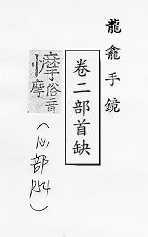 龍龕手鏡
卷二部首缺
俗音
摩
(心部